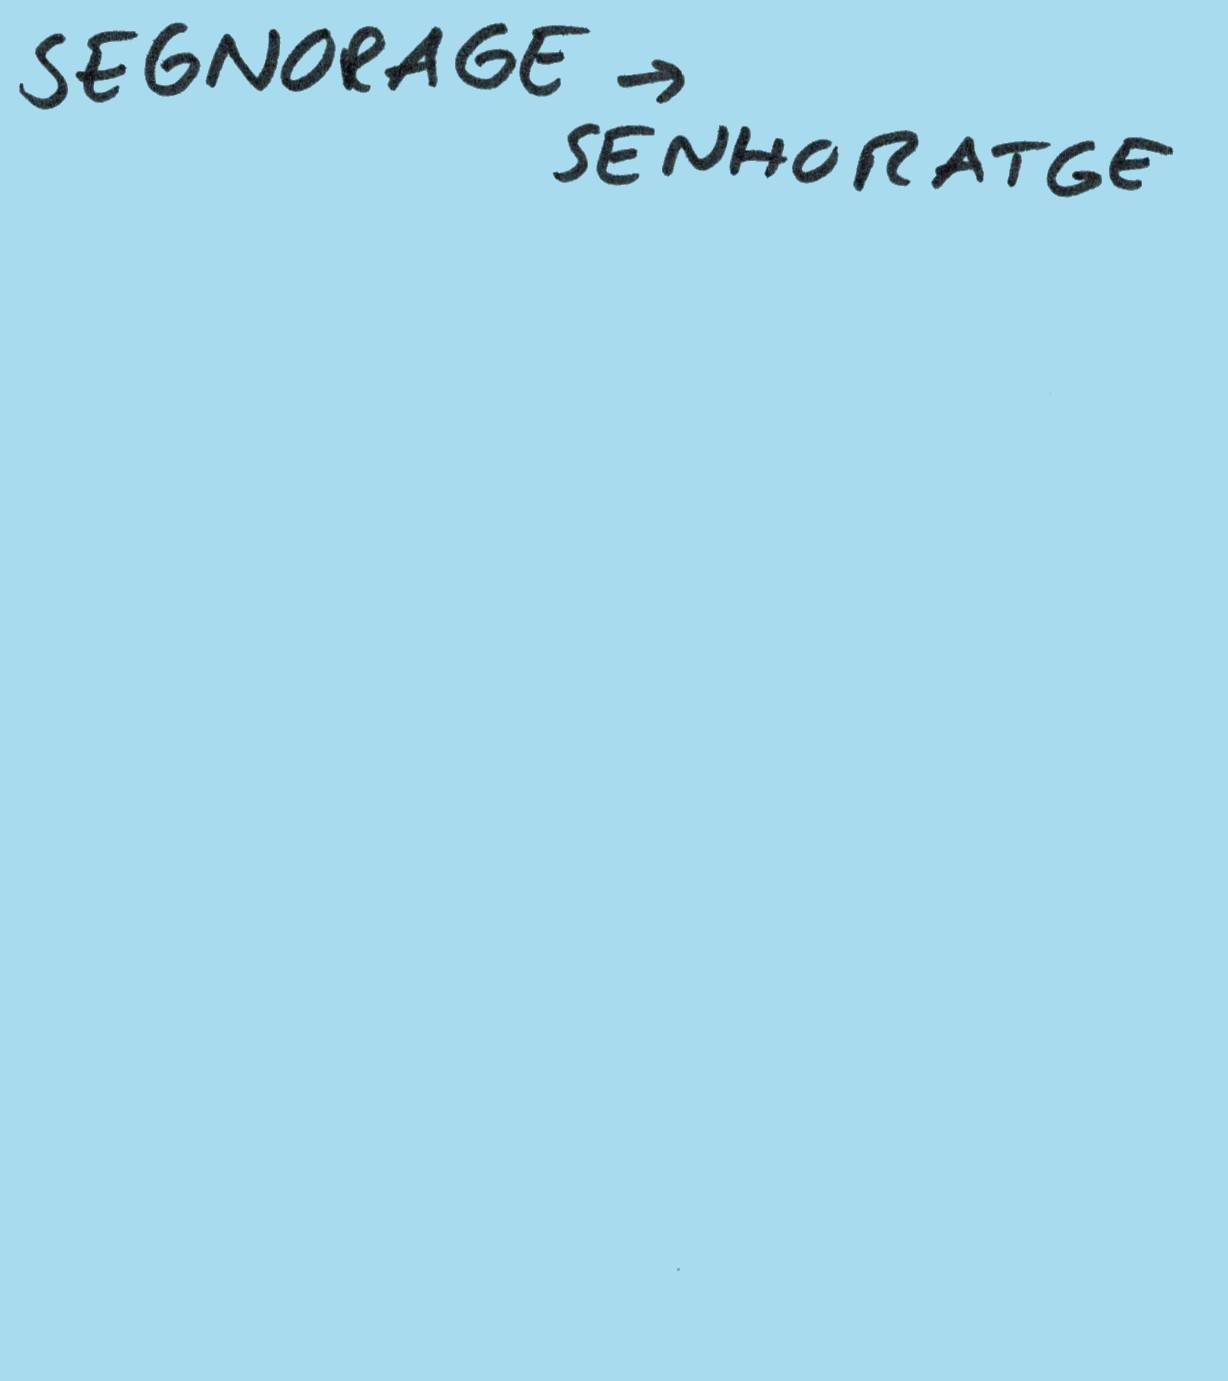 SEGNORAGE →
SENHORATGE